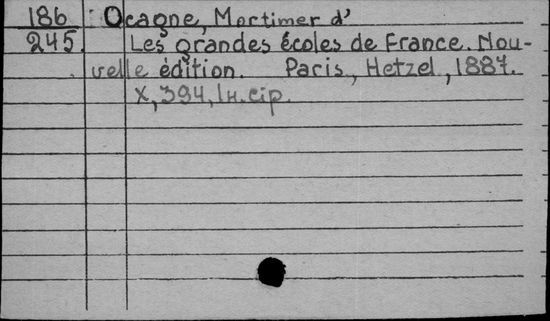 186 Ocagne, Mortimer d'
245. Les grandes écoles de France. Nou-
velle édition. Paris, Hetzel, 1887.
X, 394, 1н. сір.